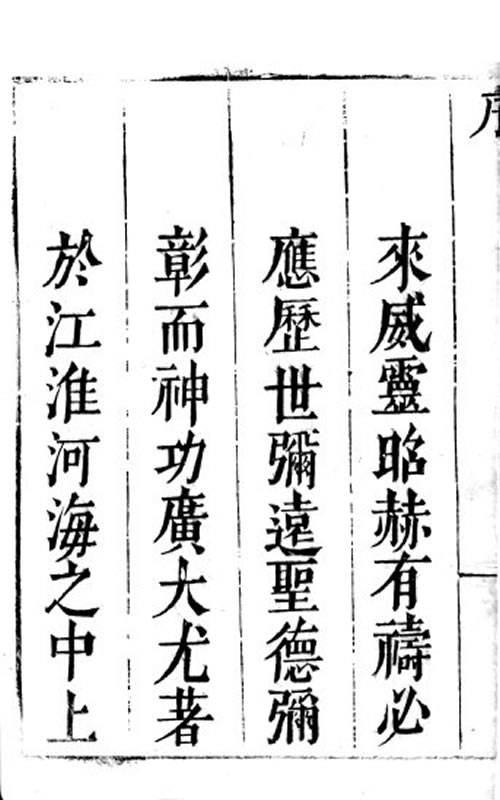 序
來威靈昭赫有禱必
應歷世彌遠聖德彌
彰而神功廣大尤著
於江淮河海之中上